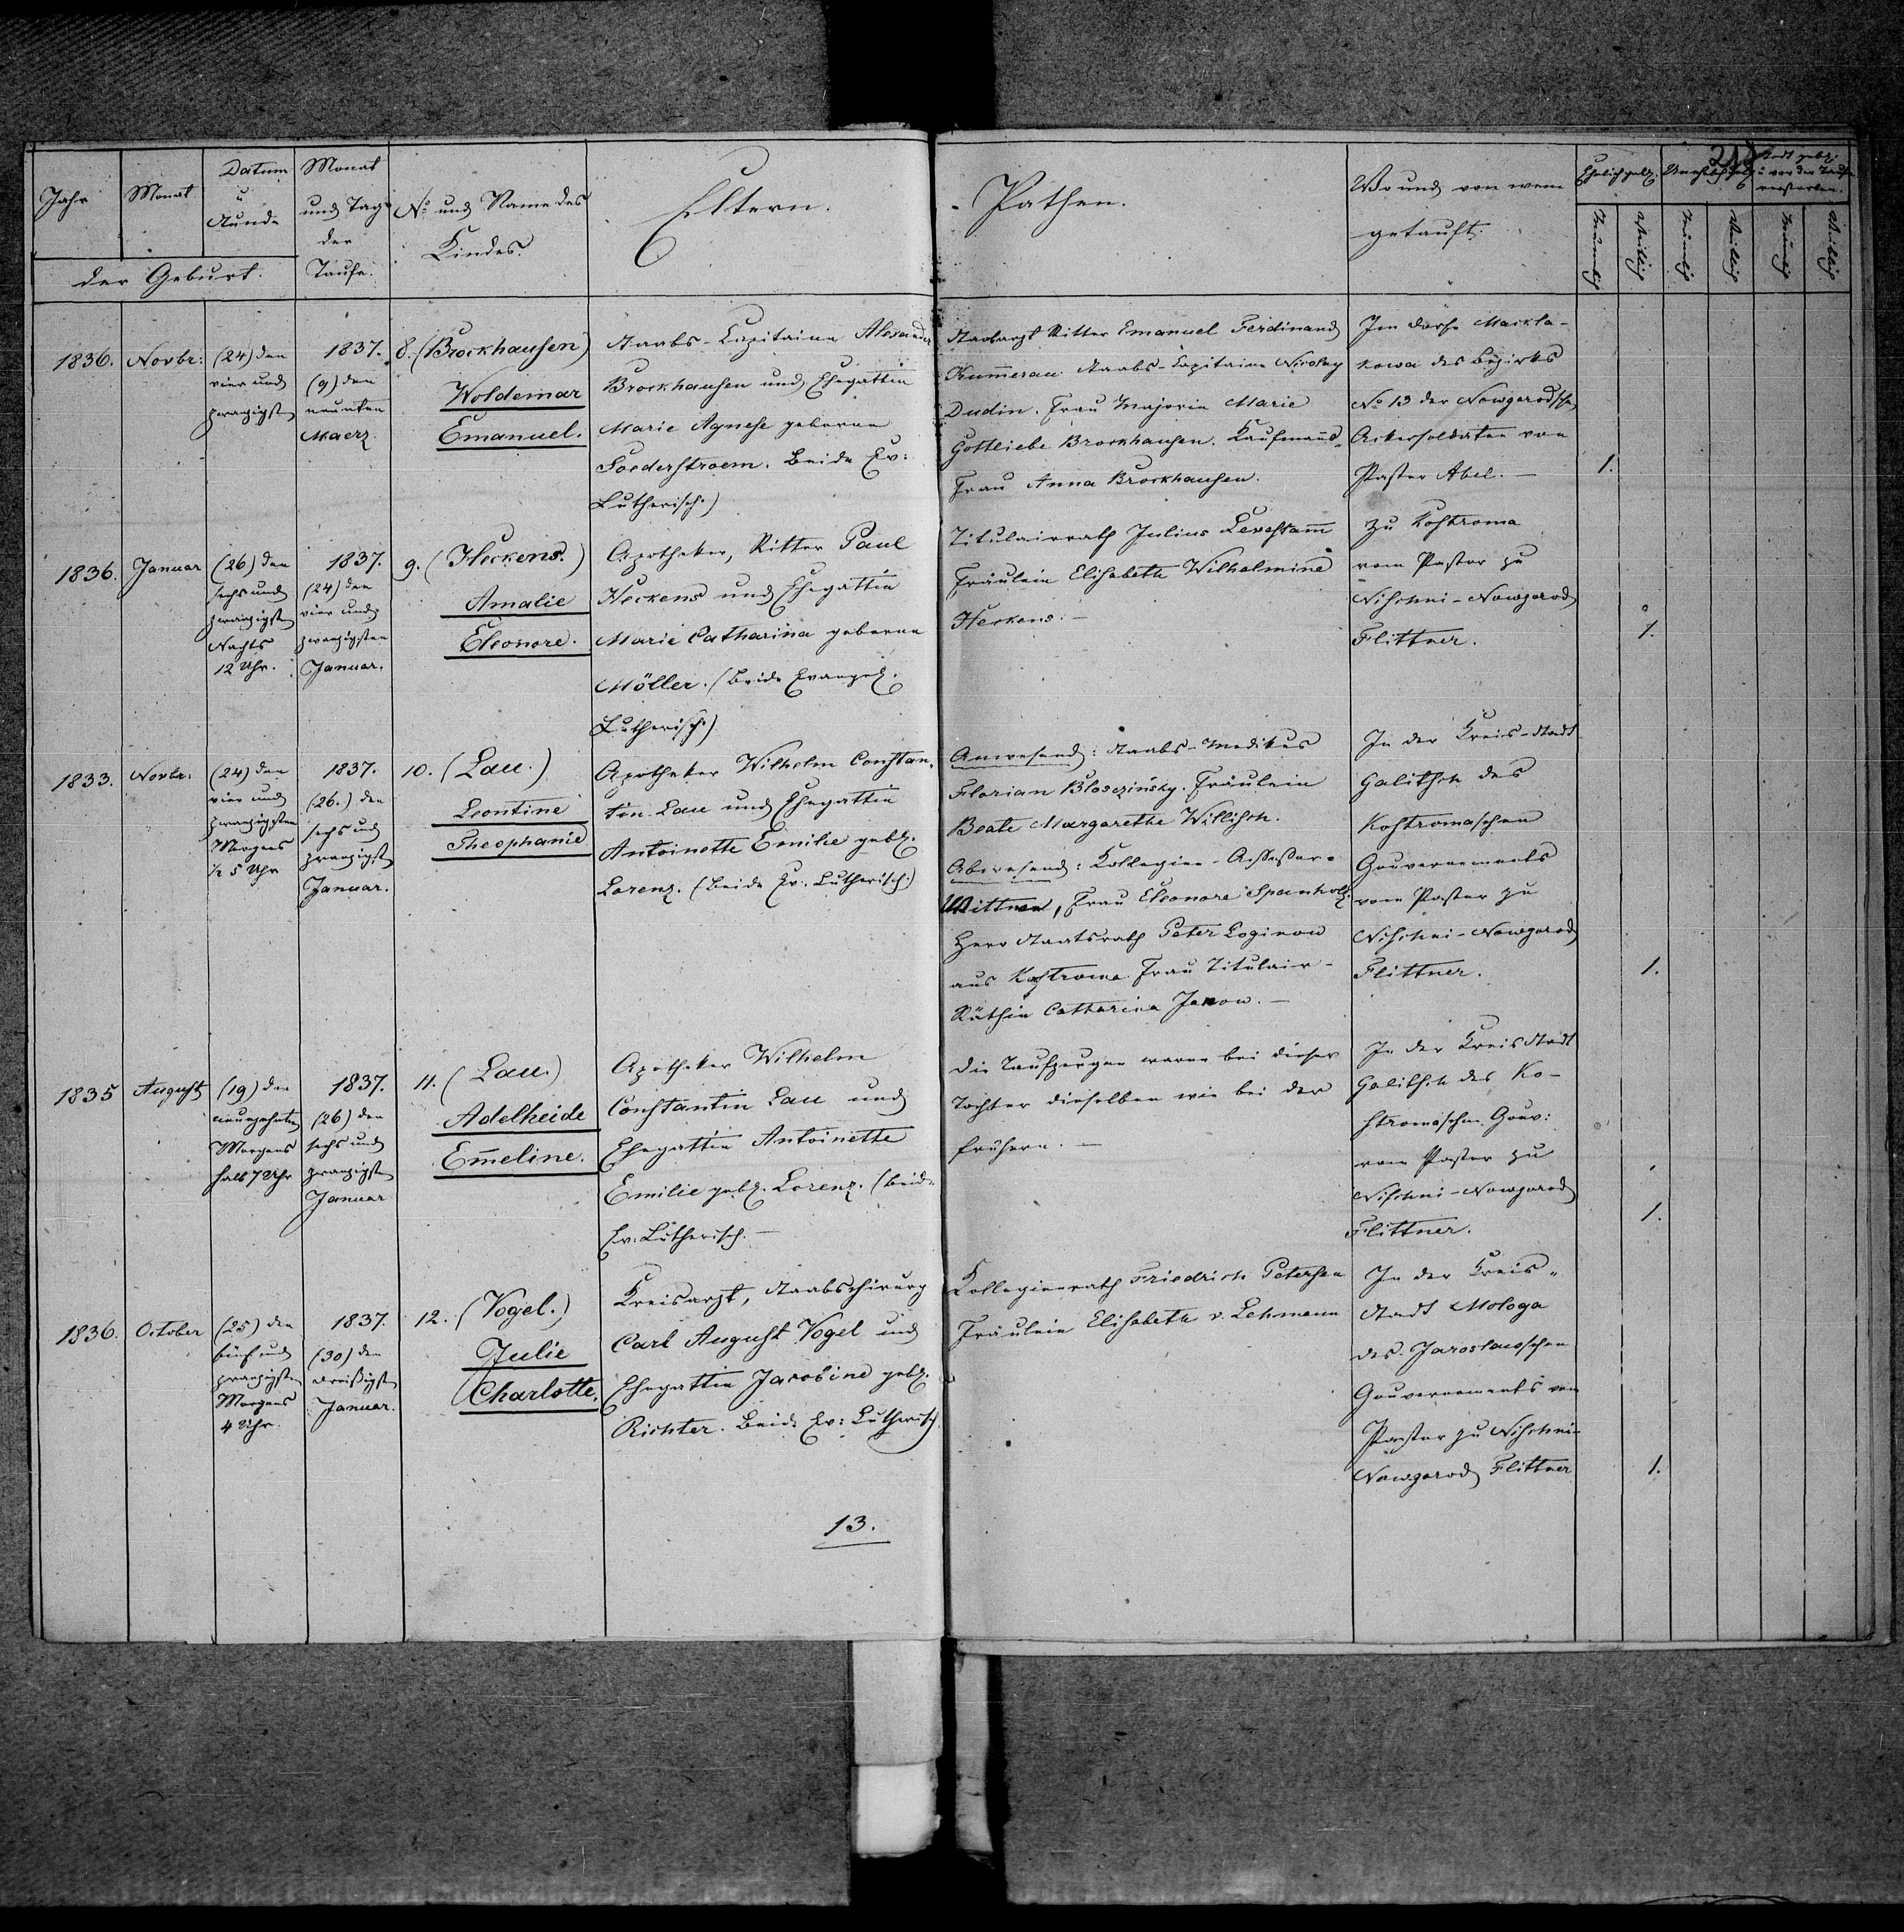 Jahr
Monat
Datum
u
Stunde
der Geburt.
Monat
und Tag
der
Taufe.
No und Name des
Kindes.
Eltern.
Pathen.
Wo und von wem
getauft.
Ehelich geb.
Männlich
Weiblich
Männlich
Weiblich
Männlich
Weiblich
1836.
Novbr:
(24) den
vier und
zwanzigst
1837.
(9) den
neunten
Maerz
8. (Brockhausen)
Woldemar
Emanuel.
Staabs-Capitaine Alexander
Brockhausen und Ehegattin
Marie Agnese geborne
Soederstroem. Beide Ev:
Lutherisch.)
Stabsarzt Ritter Emanuel Ferdinand
Kum̅erau. Staabs-Capitaine Nicolay
Dudin. Frau Majorin Marie
Gottliebe Brockhausen. Kaufmanns-
Frau Anna Brockhausen.
Im Dorfe Markla-
kowa des Bezirks
No 13 der Nowgorodsche
Ackersoldaten von
Pastor Abel. —
1.
1836.
Januar
(26) den
sechs und
zwanzigst
Nachts
12 Uhr.
1837.
(24) den
vier und
zwanzigsten
Januar.
9. (Heckens.)
Amalie
Eleonore.
Apotheker, Ritter Paul
Heckens und Ehegattin
Marie Catharina geborne
Möller. (Beide Evangel.
Lutherisch.)
Titulairrath Julius Leveestam̅
Fräulein Elisabeth Wilhelmine
Heckens. —
zu Kostroma
vom Pastor zu
Nischni-Nowgorod
Flittner.
1.
1833.
Novbr.
(24) den
vier und
zwanzigsten
Morgens
½ 5 Uhr
1837.
(26.) den
sechs und
zwanzigst
Januar.
10. (Lau.)
Leontine
Theophanie
Apotheker Wilhelm Constan-
tin Lau und Ehegattin
Antoinette Emilie geb.
Lorenz. (Beide Ev. Lutherisch.)
Anwesend: Staabs-Medikus
Florian Bloseziński. Fräulein
Beate Margarethe Willisch.
Abwesend: Kollegien-Assessor-
Wittwe, Frau Eleonore Spanholz.
Herr Staatsrath Peter Loginow
aus Kostroma. Frau Titulair-
Räthin Catharina Janow. —
In der Kreis-Stadt
Galitsch des
Kostromaschen
Gouvernements
vom Pastor zu
Nischni-Nowgorod
Flittner.
1.
1835
August
(19) den
neunzehnten
Morgens
halb 7 Uhr
1837.
(26) den
sechs und
zwanzigst
Januar
11. (Lau.)
Adelheide
Em̅eline.
Apotheker Wilhelm
Constantin Lau und
Ehegattin Antoinette
Emilie geb. Lorenz. (Beide
Ev. Lutherisch. —
Die Taufzeugen waren bei dieser
Tochter dieselben wie bei der
frühern. —
In der Kreisstadt
Galitsch des Ko-
stromaschen Gouv:
vom Pastor zu
Nischni-Nowgorod
Flittner.
1.
1836.
October
(25) den
fünf und
zwanzigsten
Morgens
4 Uhr.
1837.
(30) den
dreißigst
Januar.
12. (Vogel.)
Julie
Charlotte.
Kreisarzt, Staabschirurg
Carl August Vogel und
Ehegattin Jacobine geb.
Richter. Beide Ev: Lutherisch.
Kollegienrath Friedrich Petersen
Fräulein Elisabeth v. Lehmann
In der Kreis-
Stadt Mologa
des Jaroslawschen
Gouvernements vom
Pastor zu Nischni-
Nowgorod Flittner
1.
13.